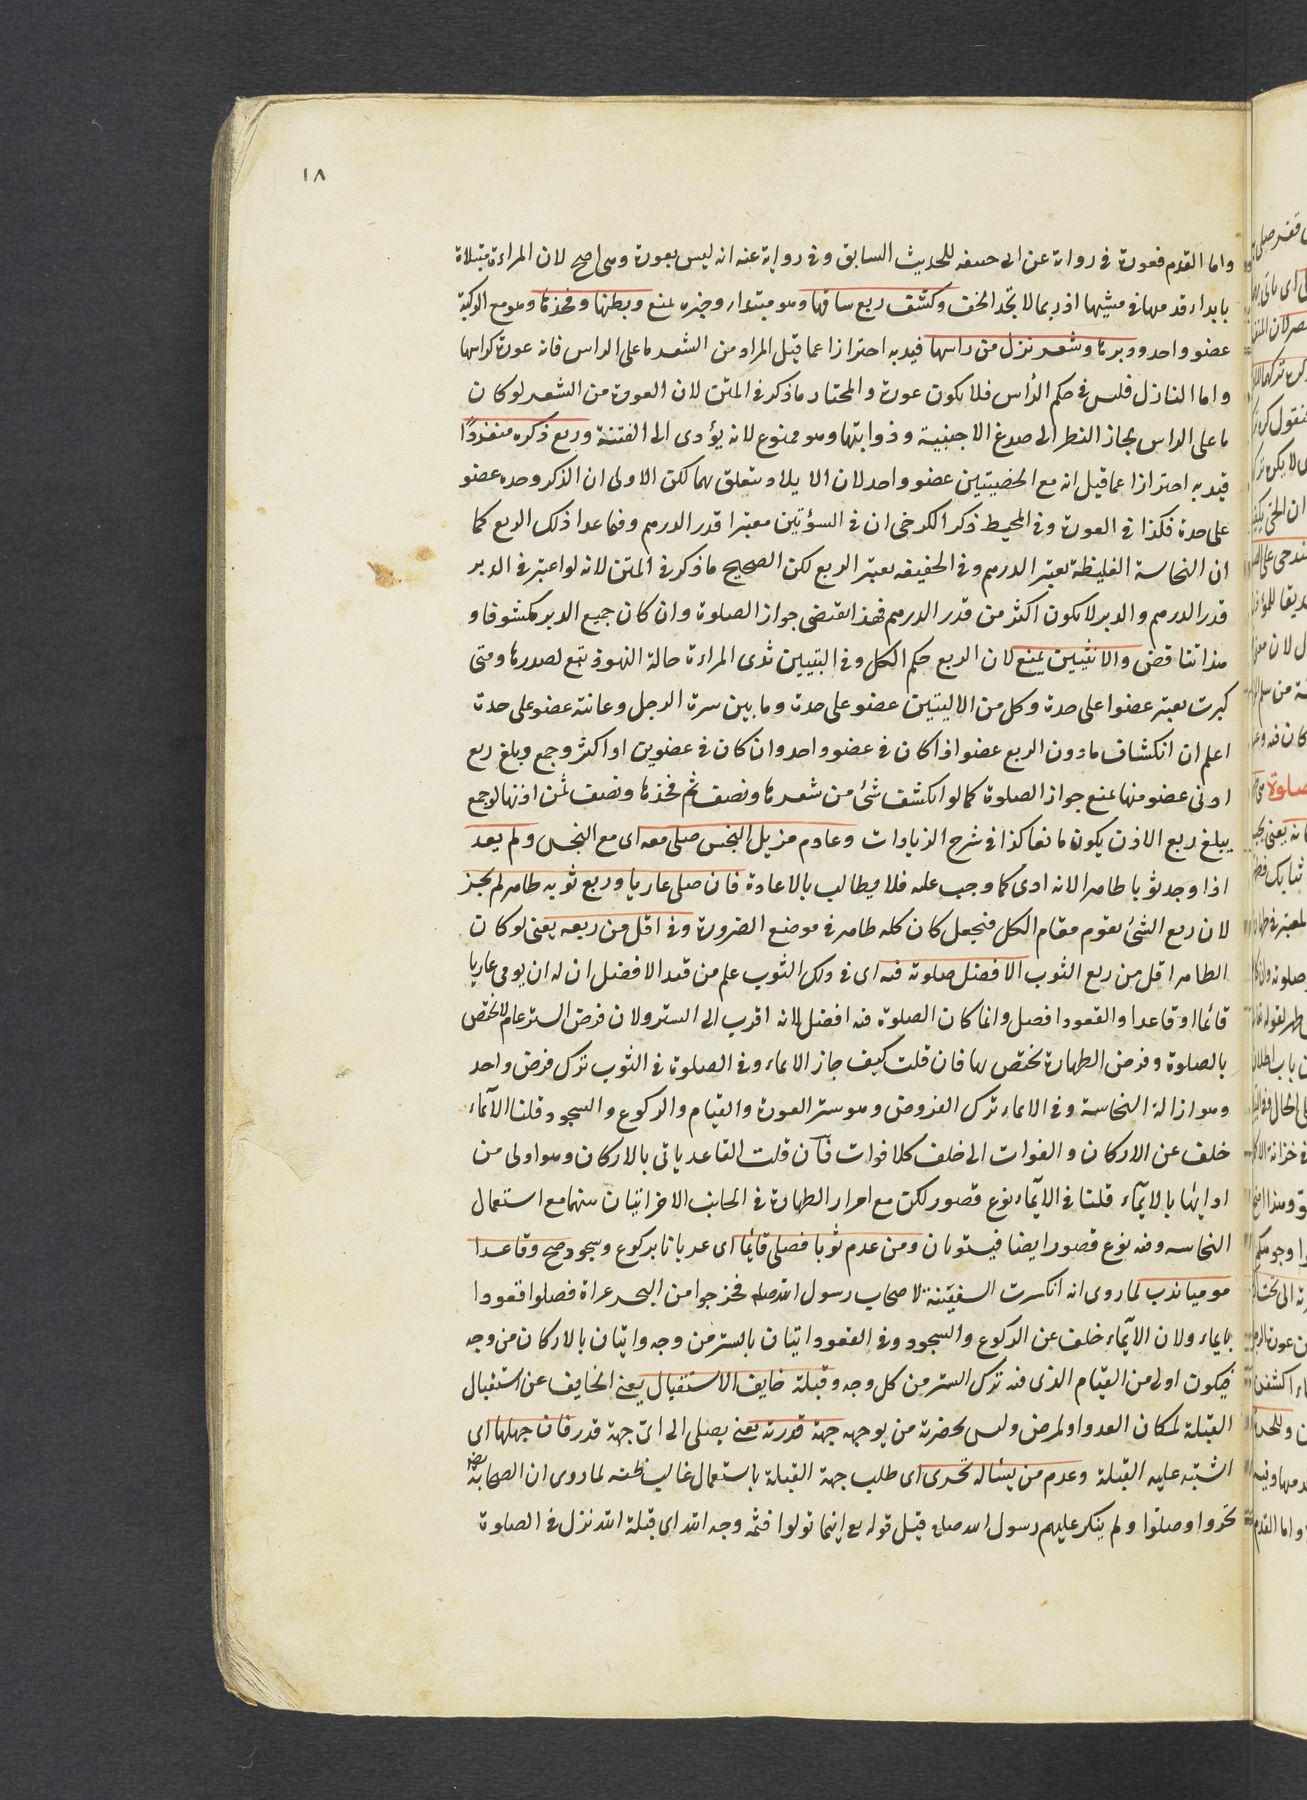 ١٨
واما القدم فعورة فى رواية عن ابى حنيفه للحديث السابق وفى رواية عنه انه ليس بعورة وهى اصح لان المراءة مبتلاة
بابداء قدمها فى مشيها اذ ربما لا تجد الخف وكشف ربع ساقها وهو مبتداء وخبره يمنع وبطنها وفخذها وهو مع الركبة
عضو واحد ودبرها وشعر نزل من راسها قيد به احترازا عما قيل المراد من الشعر ما على الراس فانه عورة كراسها
واما النازل فليس فى حكم الرأس فلا يكون عورة والمختار ما ذكر فى المتن لان العورة من الشعر لو كان
ما على الراس لجاز النظر الى صدغ الاجنبية وذوابتها وهو ممنوع لانه يؤدى الى الفتنة وربع ذكره منفردًا
قيد به احترازا عما قيل انه مع الخصيتين عضو واحد لان الايلاد يتعلق بهما لكن الاولى ان الذكر وحده عضو
على حدة فكذا فى العورة وفى المحيط ذكر الكرخى ان فى السؤتين معتبرا قدر الدرهم وفيما عدا ذلك الربع كما
ان النجاسة الغليظة يعتبر الدرهم وفى الخفيفه يعتبر الربع لكن الصحيح ما ذكر فى المتن لانه لو اعتبر فى الدبر
قدر الدرهم والدبر لا يكون اكثر من قدر الدرهم فهذا يقتضى جواز الصلوة وان كان جميع الدبر مكشوفا و
هذا تناقض والانثيين يمنع لان الربع حكم الكل وفى التبيين ثدى المراءة حالة النهود تبع لصدرها ومتى
كبرت يعتبر عضوا على حدة وكل من الاليتين عضو على حدة وما بين سرة الرجل وعانته عضو على حدة
اعلم ان انكشاف ما دون الربع عضو اذا كان فى عضو واحد وان كان فى عضوين او اكثر وجمع وبلغ ربع
ادنى عضو منها يمنع جواز الصلوة كما لو انكشف شئ من شعرها ونصف ثمن فخذها ونصف ثمن اذنها لو جمع
يبلغ ربع الاذن يكون مانعا كذا فى شرح الزيادات وعادم مزيل النجس صلى معه اى مع النجس ولم يعد
اذا وجد ثوبا طاهرا لانه ادى كما وجب عليه فلا يطالب بالاعادة فان صلى عاريا وربع ثوبه طاهر لم يجز
لان ربع الشئ يقوم مقام الكل فيجعل كان كله طاهر فى موضع الضرورة وفى اقل من ربعه يعنى لو كان
الطاهر اقل من ربع الثوب الافضل صلوته فيه اى فى ذلك الثوب علم من قيد الافضل ان له ان يومى عاريا
قائما او قاعدا والقعود افضل وانما كان الصلوة فيه افضل لانه اقرب الى الستر ولان فرض الستر عام لا يختص
بالصلوة وفرض الطهارة يختص بها فان قلت كيف جاز الايماء وفى الصلوة فى الثوب ترك فرض واحد
وهو ازالة النجاسة وفى الايماء ترك الفروض وهو ستر العورة والقيام والركوع والسجود قلنا الايماء
خلف عن الاركان والفوات الى خلف كلا فوات فان قلت القاعد ياتى بالاركان وهو اولى من
ادائها بالايماء قلنا فى الايماء نوع قصور لكن مع احراز الطهارة فى الجانب الاخر اتيان منهما مع استعمال
النجاسه وفيه نوع قصور ايضا فيستويان ومن عدم ثوبا فصلى قائما اى عريانا بركوع وسجود صح وقاعدا
موميا ندب لما روى انه انكسرت السفينة لاصحاب رسول الله صلم فخرجوا من البحر عراة فصلوا قعودا
بايماء ولان الايماء خلف عن الركوع والسجود وفى القعود اتيان بالستر من وجه واتيان بالاركان من وجه
فيكون اولى من القيام الذى فيه ترك الستر من كل وجه وقبلة خايف الاستقبال يعنى الخايف عن استقبال
القبلة لمكان العدو او لمرض وليس بحضرته من يوجهه جهة قدرته يعنى يصلى الى اى جهة قدر فان جهلها اى
اشتبه عليه القبلة وعدم من يسئاله تحرى اى طلب جهة القبلة باستعمال غالب ظنه لما روى ان الصحابة
تحروا وصلوا ولم ينكر عليهم رسول الله صلم قيل قوله تع اينما تولوا فثم وجه الله اى قبلة الله نزل فى الصلوة